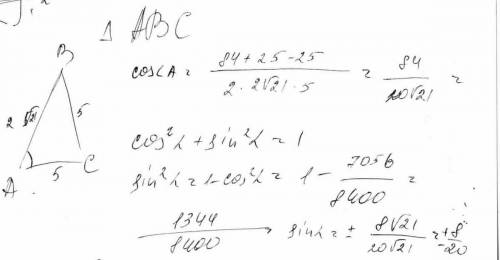 Δ ABC
B
2√21
5
A
5
C
cos∠A = (84 + 25 - 25)/(2 · 2√21 · 5) = 84/(20√21) =
cos²α + sin²α = 1
sin²α = 1 - cos²α = 1 - 7056/8400 =
1344/8400
sinα = ± 8√21/(20√21) = ± 8/20